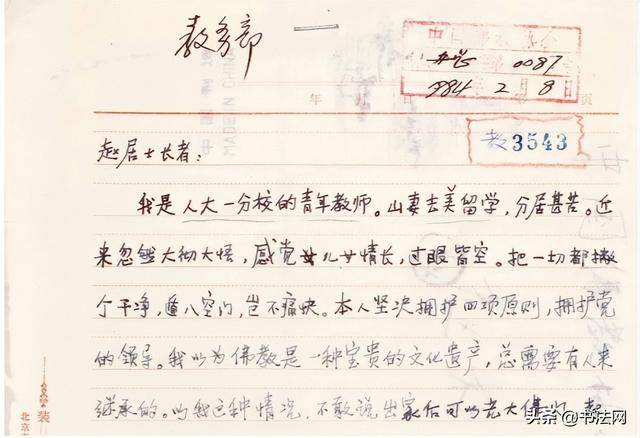 教务部
1984年2月8日
0087
年 月 日 页
教3543
MADE IN CHINA
赵居士长者：
我是人大一分校的青年教师。山妻去美留学，分居甚苦。近
来忽然大彻大悟，感觉女儿女情长，过眼皆空。把一切都撇
个干净，遁入空门，岂不痛快。本人坚决拥护四项原则，拥护党
的领导。我以为佛教是一种宝贵的文化遗产，总需要有人来
继承的。以我这种情况，不敢说出家后可以光大佛门，
装
北京
头条 @书法网